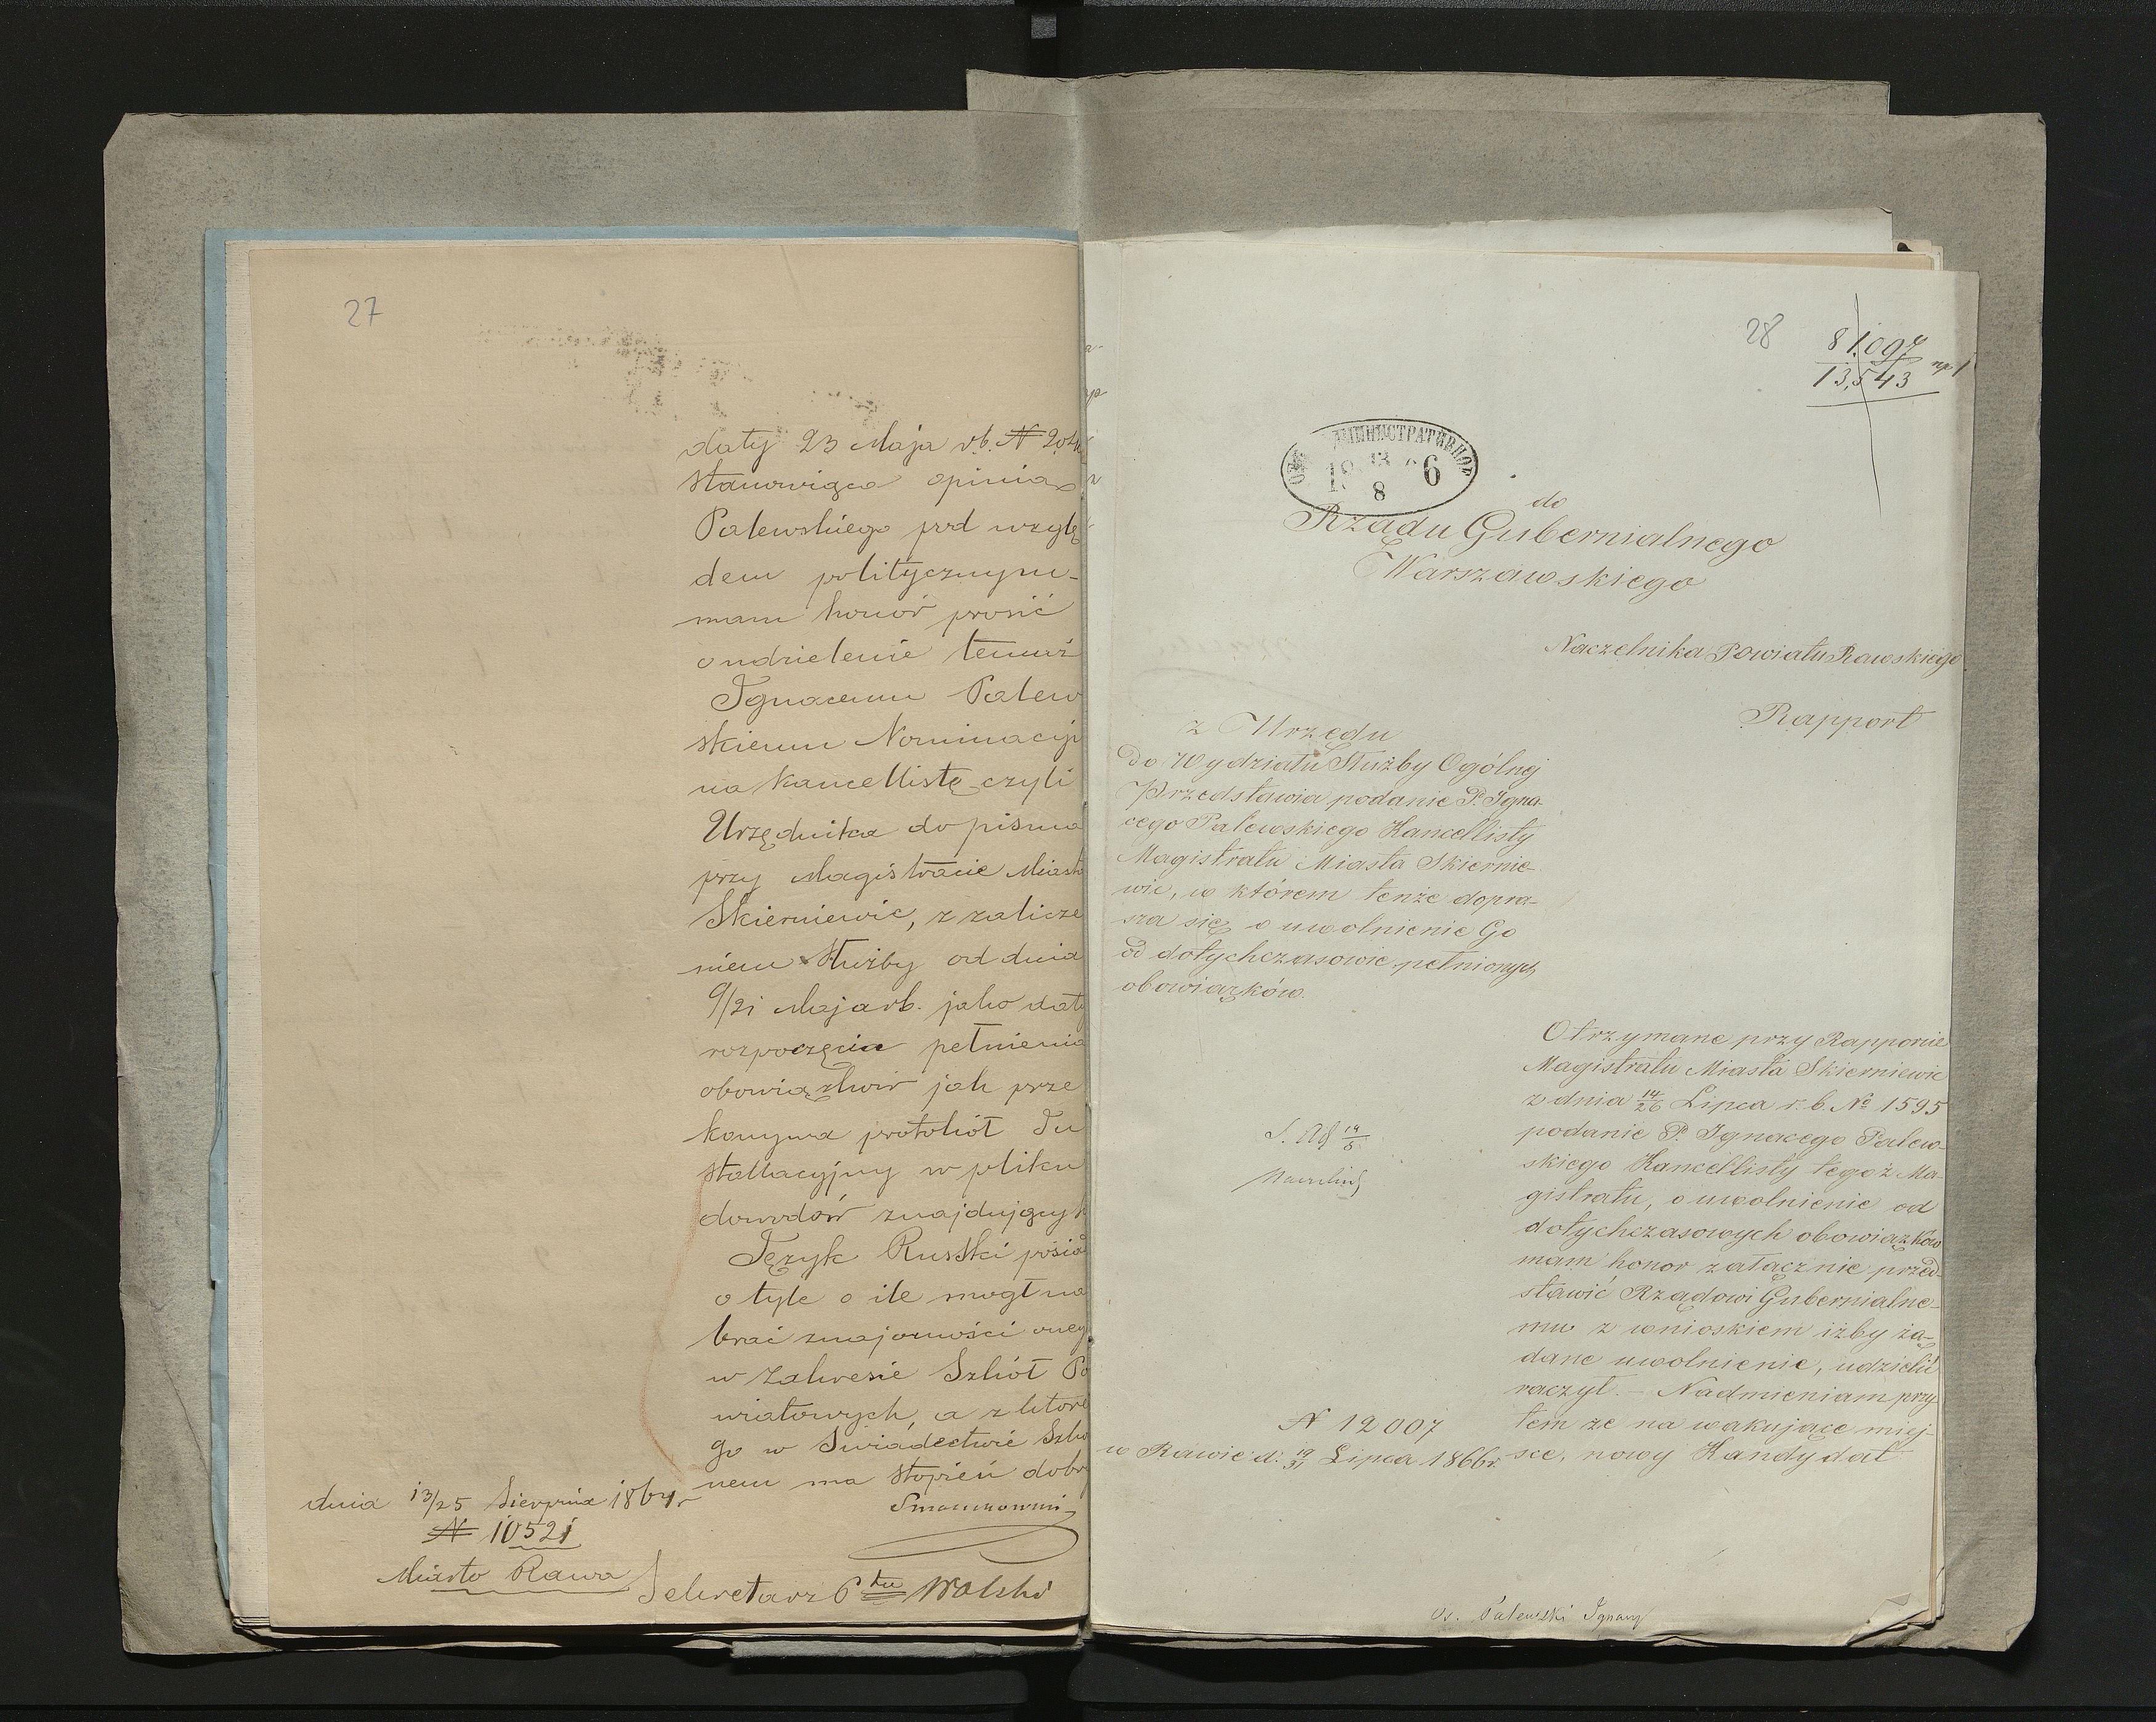 27
daty 23 Maja r.b. N
stanowiąca opinią
Palewskiego pod wzglę
dem politycznym-
mam honor prosić
o udzielenie temuż
Ignacemu Palew
skiemu Nominacyi
na kancellistę czyli
Urzędnika do pisma
przy Magistracie Miasta
Skierniewic, z zalicze
niem służby od dnia
9/21 Maja rb. jako daty
rozpoczęcia pełnienia
obowiązków jak prze
konywa protokół In
stallacyjny w pliku
dowodów znajdujący
Język Russki posia
o tyle o ile mógł na
brać znajomości
w zakresie Szkół Po
wiatowych, a z które
go w Świadectwie Szkol
nem ma stopień dobry
dnia 13/25 Sierpnia 1864r
N 10521
Miasto Rawa
Sekretarz Ptu Wolski
28
81,097
13,543
АДМИНИСТРАТИВНОЕ
13
8
do
Rządu Gubernialnego
Warszawskiego
Naczelnika Powiatu Rawskiego
Rapport
z Urzędu
Do Wydziału Służby Ogólnej
Przedstawia podanie P. Igna-
cego Palewskiego Kancellisty
Magistratu Miasta Skiernie-
wic, w którem tenże dopra-
sza się o uwolnienie Go
od dotychczasowie pełnionych
obowiązków.
Otrzymane przy Rapporcie
Magistratu Miasta Skierniewic
z dnia 14/26 Lipca r.b. No 1595
podanie P. Ignacego Palew-
skiego Kancellisty tegoż Ma-
gistratu, o uwolnienie od
dotychczasowych obowiązków
mam honor załącznie przed-
stawić Rządowi Gubernialne-
mu z wnioskiem iżby żą-
dane uwolnienie, udzielić
raczył. - Nadmieniam przy
tem że na wakujące miej-
sce, nowy Kandydat
N 12007
w Rawie d: 19/31 Lipca 1866r.
Os. Palewski Ignacy